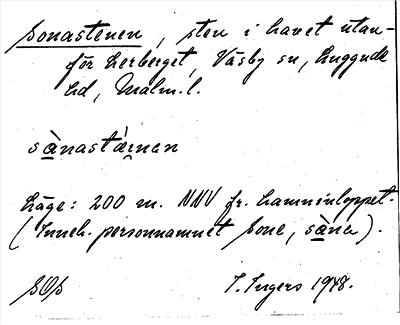 Sonastenen, sten i havet utan-
för Lerberget, Väsby sn, Luggude
hd, Malm.l.
sànastárnan
Läge: 200 m. NNV fr. hamninloppet.
(Inneh. personnamnet Sone, sàna).
SOS
I. Ingers 1948.